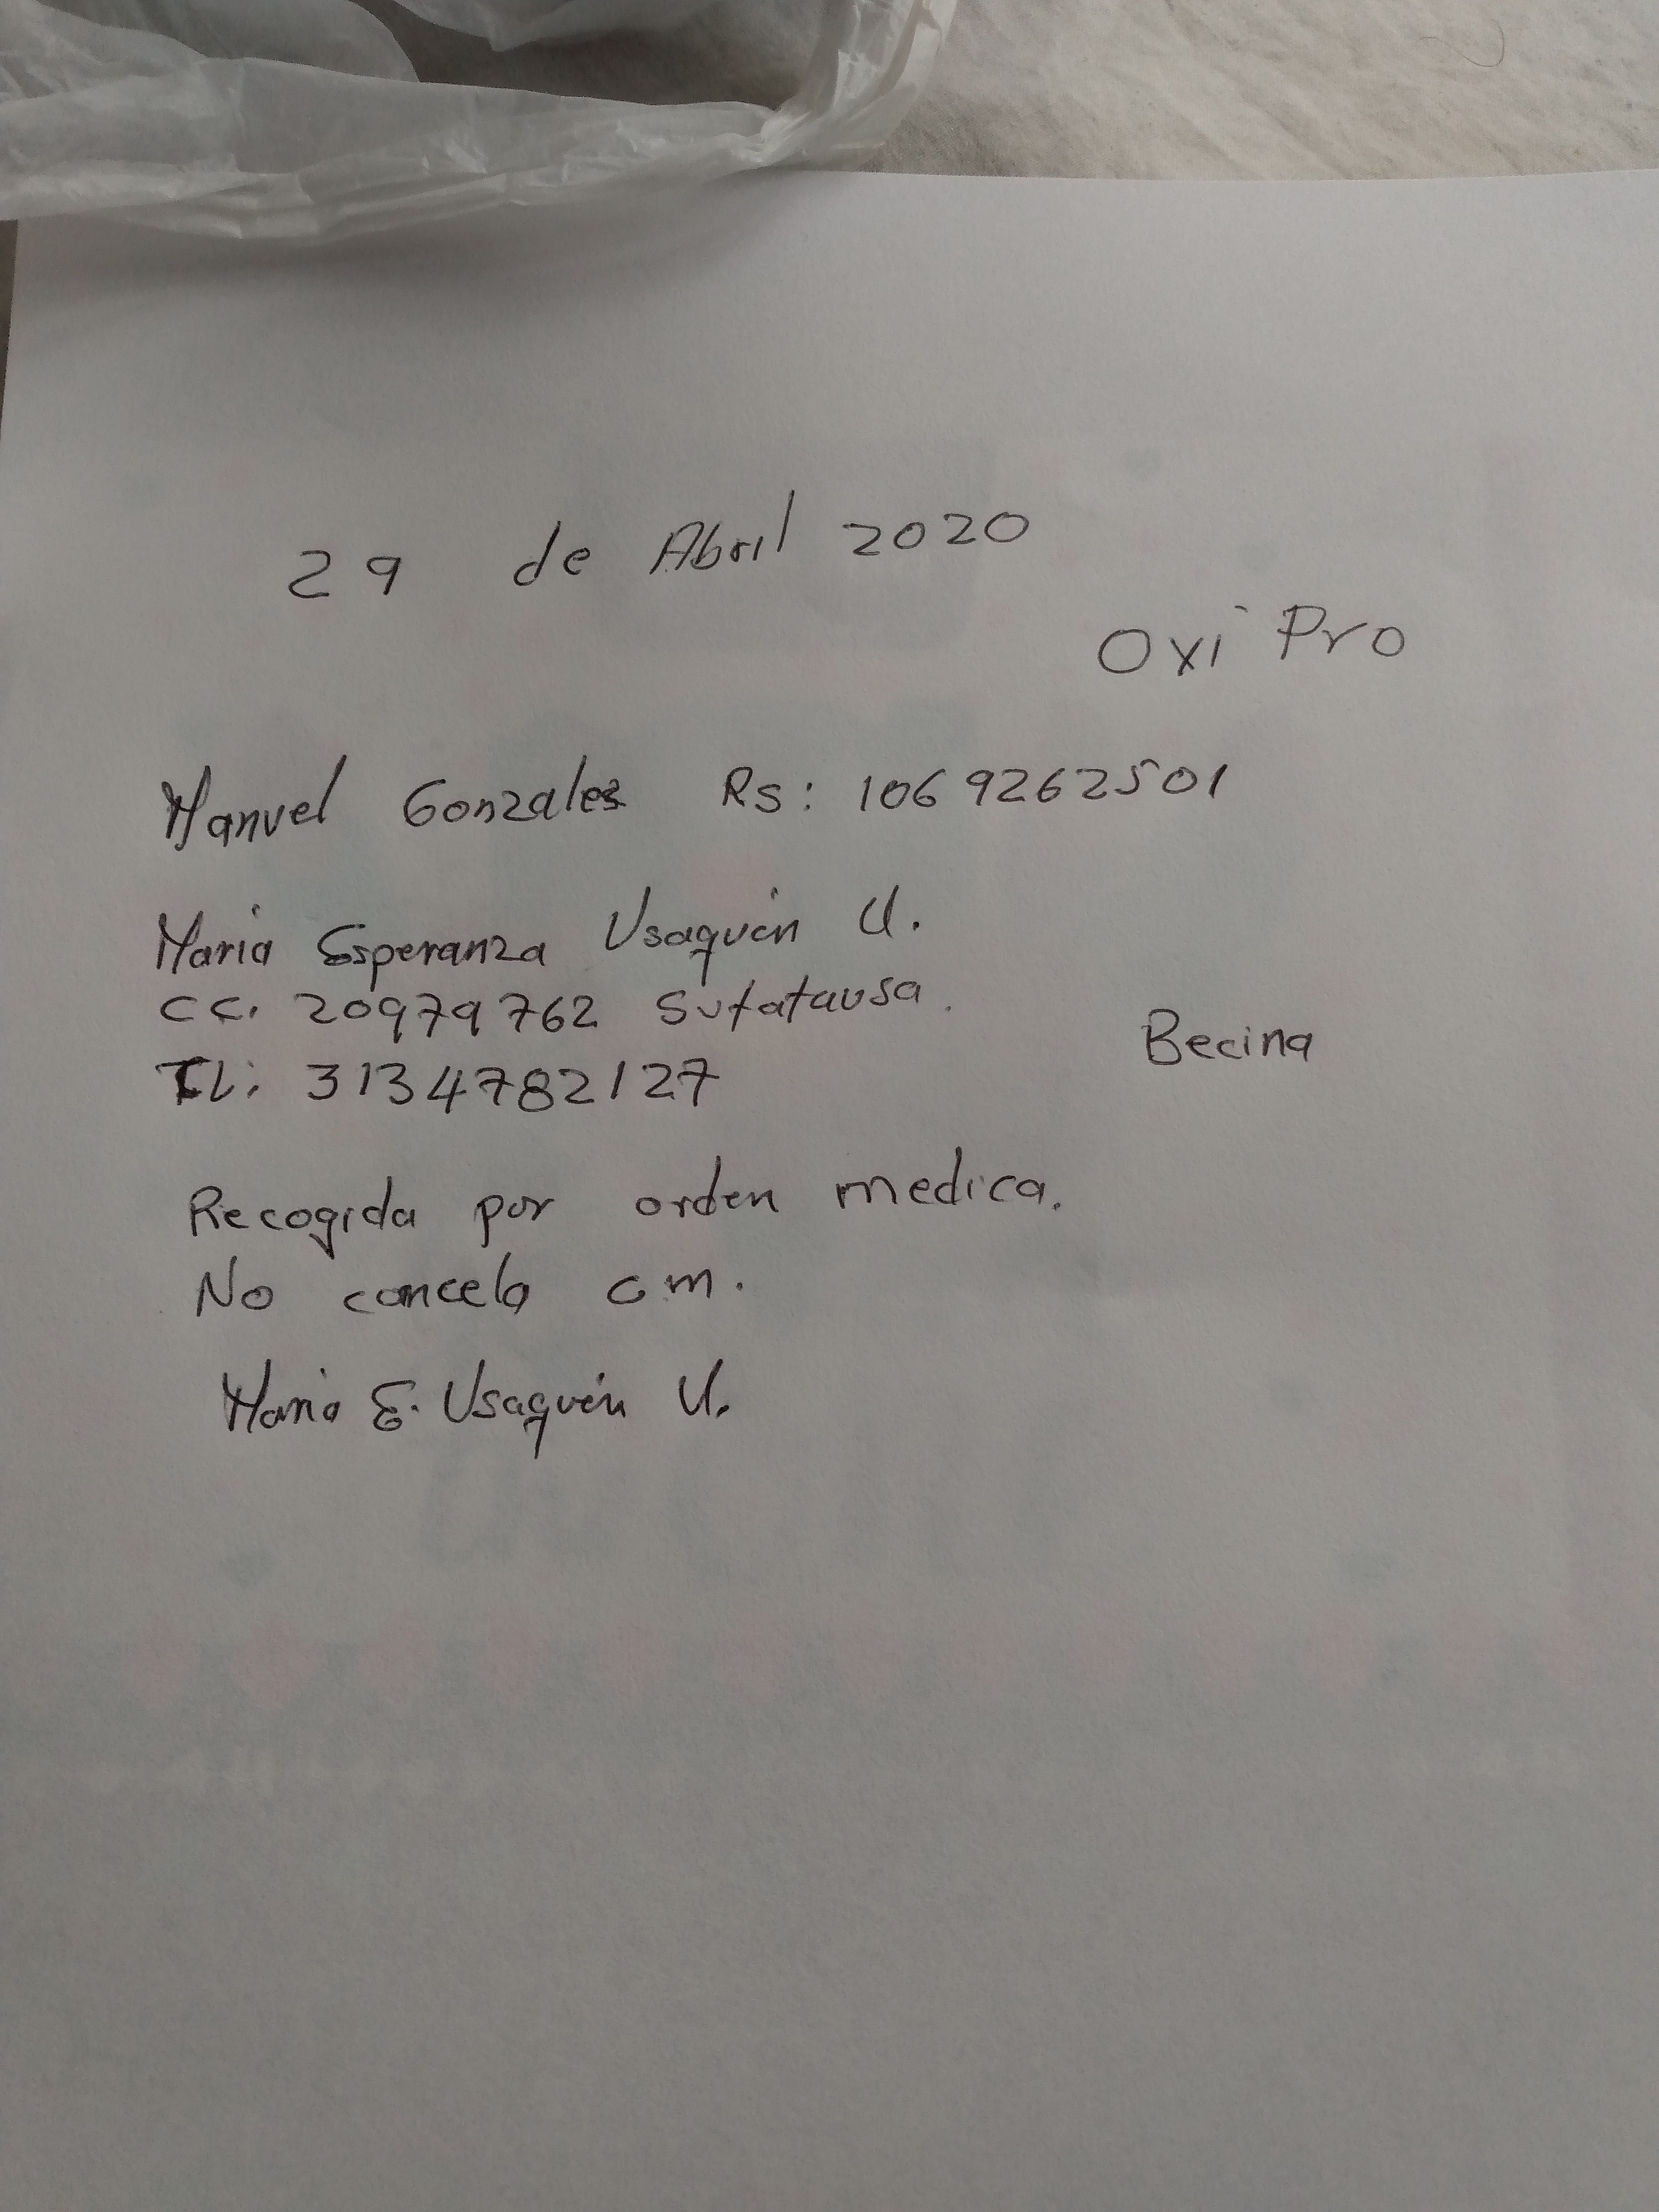 29 de Abril 2020
Oxi Pro
Manuel Gonzales Rs: 1069262501
Maria Esperanza Usaquén U.
CC. 20979762 Sutatausa.
Becina
TL: 3134782127
Recogida por orden medica.
No cancela cm.
Maria E. Usaquén U.